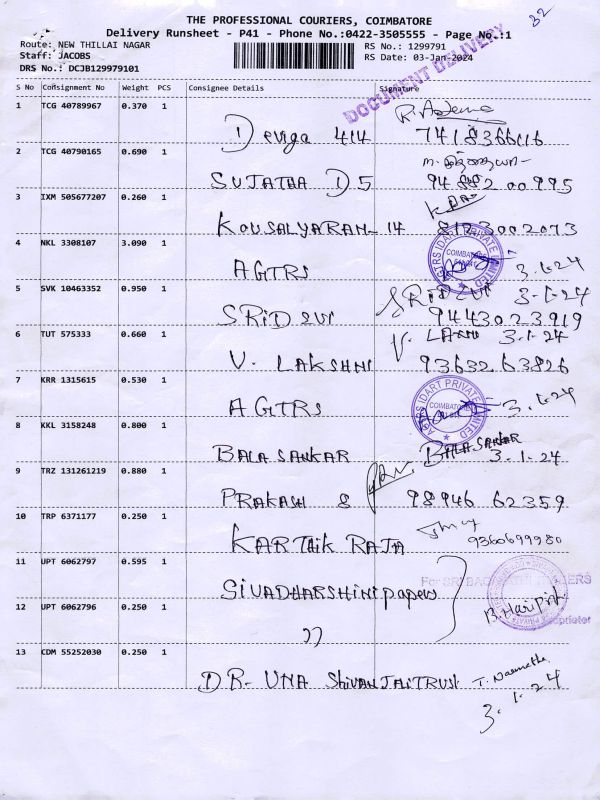 32
THE PROFESSIONAL COURIERS, COIMBATORE
Delivery Runsheet - P41 - Phone No.:0422-3505555 - Page No.:1
Route: NEW THILLAI NAGAR
RS No.: 1299791
Staff: JACOBS
RS Date: 03-Jan-2024
DRS No.: DCJB129979101
DOCUMENT DELIVERY
S No Consignment No Weight PCS Consignee Details Signature
1 TCG 40789967 0.370 1 Deviga 414
2 TCG 40790165 0.690 1 SUJATHA D 5
3 IXM 505677207 0.260 1 KOUSALYARAM 14
4 NKL 3308107 3.090 1 AGTRS 3.1.24
AGTRS IDART PRIVATE LIMITED
COIMBATORE
5 SVK 10463352 0.950 1 SRIDEVI SRIDEVI 3-1-24
9443023919
6 TUT 575333 0.660 1 V. LAKSHMI V. 3.1.24
9363263826
7 KRR 1315615 0.530 1 AGTRS 3.1.24
AGTRS IDART PRIVATE LIMITED
COIMBATORE
8 KKL 3158248 0.800 1 BALA SANKAR BALA SANKAR
3.1.24
9 TRZ 131261219 0.880 1 PRAKASH 8 98946 62359
10 TRP 6371177 0.250 1 KARTHIK RAJA 9360699980
11 UPT 6062797 0.595 1 SIVADHARSHINI papers
12 UPT 6062796 0.250 1 ))
Proprieter
13 CDM 55252030 0.250 1 DR. UMA
3.1.24